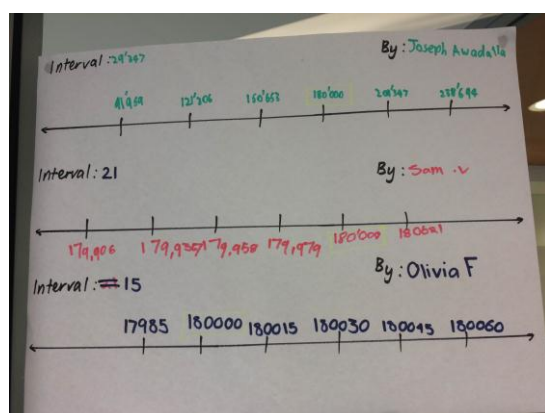 Interval: 29'347 By: Joseph Awadalla
121'306 150'653 180'000 209'347 238'694
Interval: 21 By: Sam .v
179,979 180'000 180021
Interval: 15 By: Olivia F
17985 180000 180015 180030 180045 180060